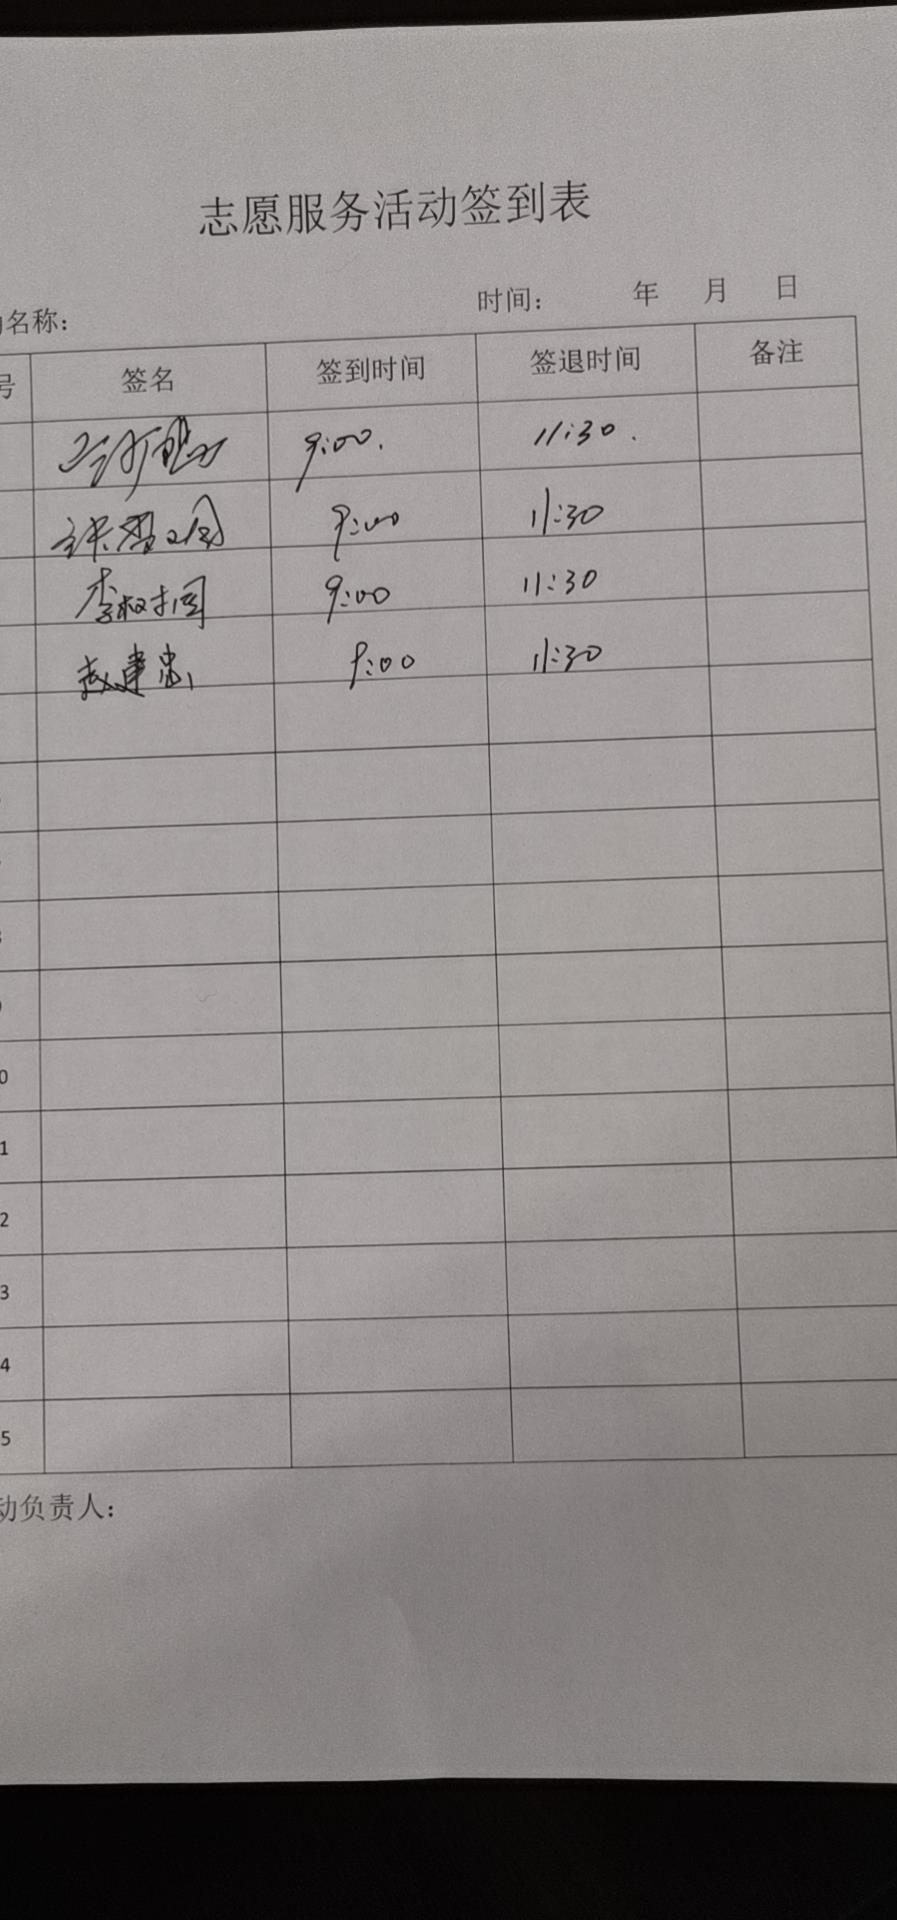 志愿服务活动签到表
名称： 时间： 年 月 日
号 签名 签到时间 签退时间 备注
9:00. 11:30.
9:00 11:30
李 9:00 11:30
赵建忠 9:00 11:30
0
1
2
3
4
5
动负责人：